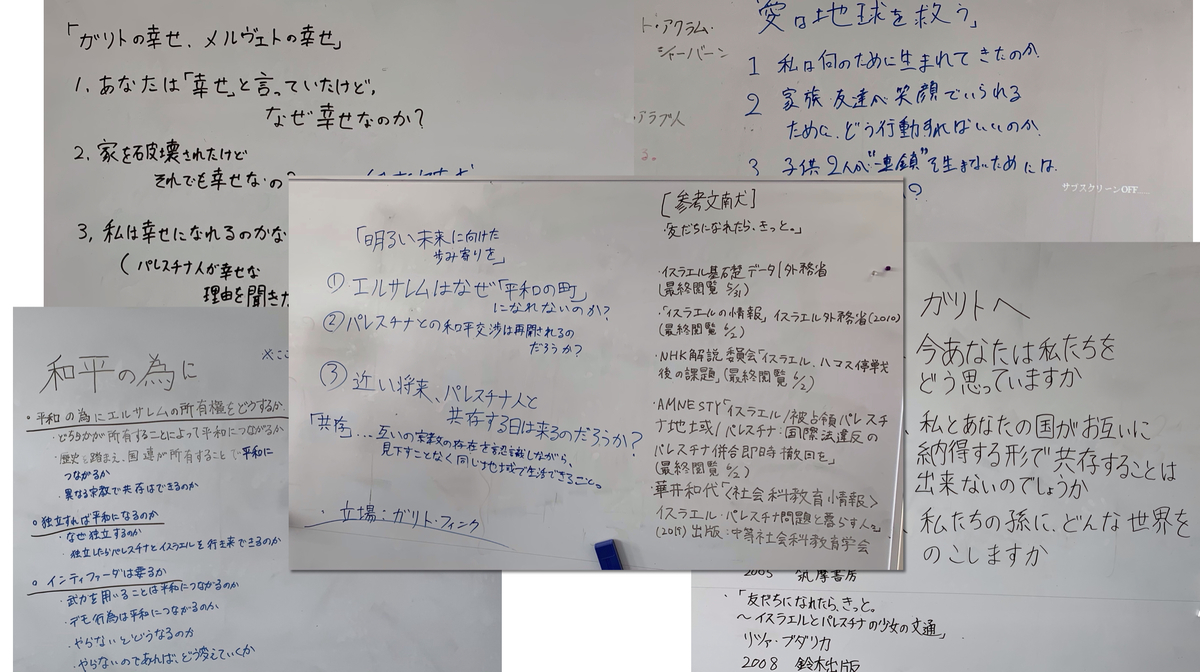 「ガリトの幸せ、メルヴェトの幸せ」
1. あなたは「幸せ」と言っていたけど、
なぜ幸せなのか？
2. 家を破壊されたけど
それでも幸せなの？
3. 私は幸せになれるのかな
(パレスチナ人が幸せな
理由を聞きた
ト・アクラム・
シャーバーン
アラブ人
る。
「愛は地球を救う」
1 私は何のために生まれてきたのか
2 家族 友達が笑顔でいられる
ために、どう行動すればいいのか
3 子供2人が"連鎖"を生まないためには
？
サブスクリーンOFF
「明るい未来に向けた
歩み寄りを」
① エルサレムはなぜ「平和の町」
になれないのか？
② パレスチナとの和平交渉は再開されるの
だろうか？
③ 近い将来、パレスチナ人と
共存する日は来るのだろうか？
「共存」… 互いの宗教の存在を認識しながら、
見下すことなく同じ地域で生活できること。
・立場：ガリト・フィンク
[参考文献]
・友だちになれたら、きっと。」
・イスラエル基礎データ|外務省
(最終閲覧 5/31)
・「イスラエルの情報」イスラエル外務省(2010)
(最終閲覧 6/2)
・NHK解説委員会「イスラエル、ハマス停戦
後の課題」(最終閲覧 6/2)
・AMNESTY「イスラエル/被占領パレスチ
ナ地域/パレスチナ：国際法違反の
パレスチナ併合即時撤回を」
(最終閲覧 6/2)
華井和代「〈社会科教育情報〉
イスラエル・パレスチナ問題と暮らす人。」
(2019) 出版：中等社会科教育学会
和平の為に
※ここ
・平和の為にエルサレムの所有権をどうするか
・どちらかが所有することによって平和につながるか
・歴史を踏まえ、国連が所有することで平和に
つながるか
・異なる宗教で共存はできるのか
・独立すれば平和になるのか
・なぜ独立するのか
・独立したらパレスチナとイスラエルを行き来できるのか
・インティファーダは要るか
・武力を用いることは平和につながるのか
・デモ行為は平和につながるのか
・やらないとどうなるのか
・やらないのであれば、どう変えていくか
ガリトへ
今あなたは私たちを
どう思っていますか
私とあなたの国がお互いに
納得する形で共存することは
出来ないのでしょうか
私たちの孫に、どんな世界を
のこしますか
2005 筑摩書房
・「友だちになれたら、きっと。
～イスラエルとパレスチナの少女の文通」
リツァ・ブダリカ
2008 鈴木出版